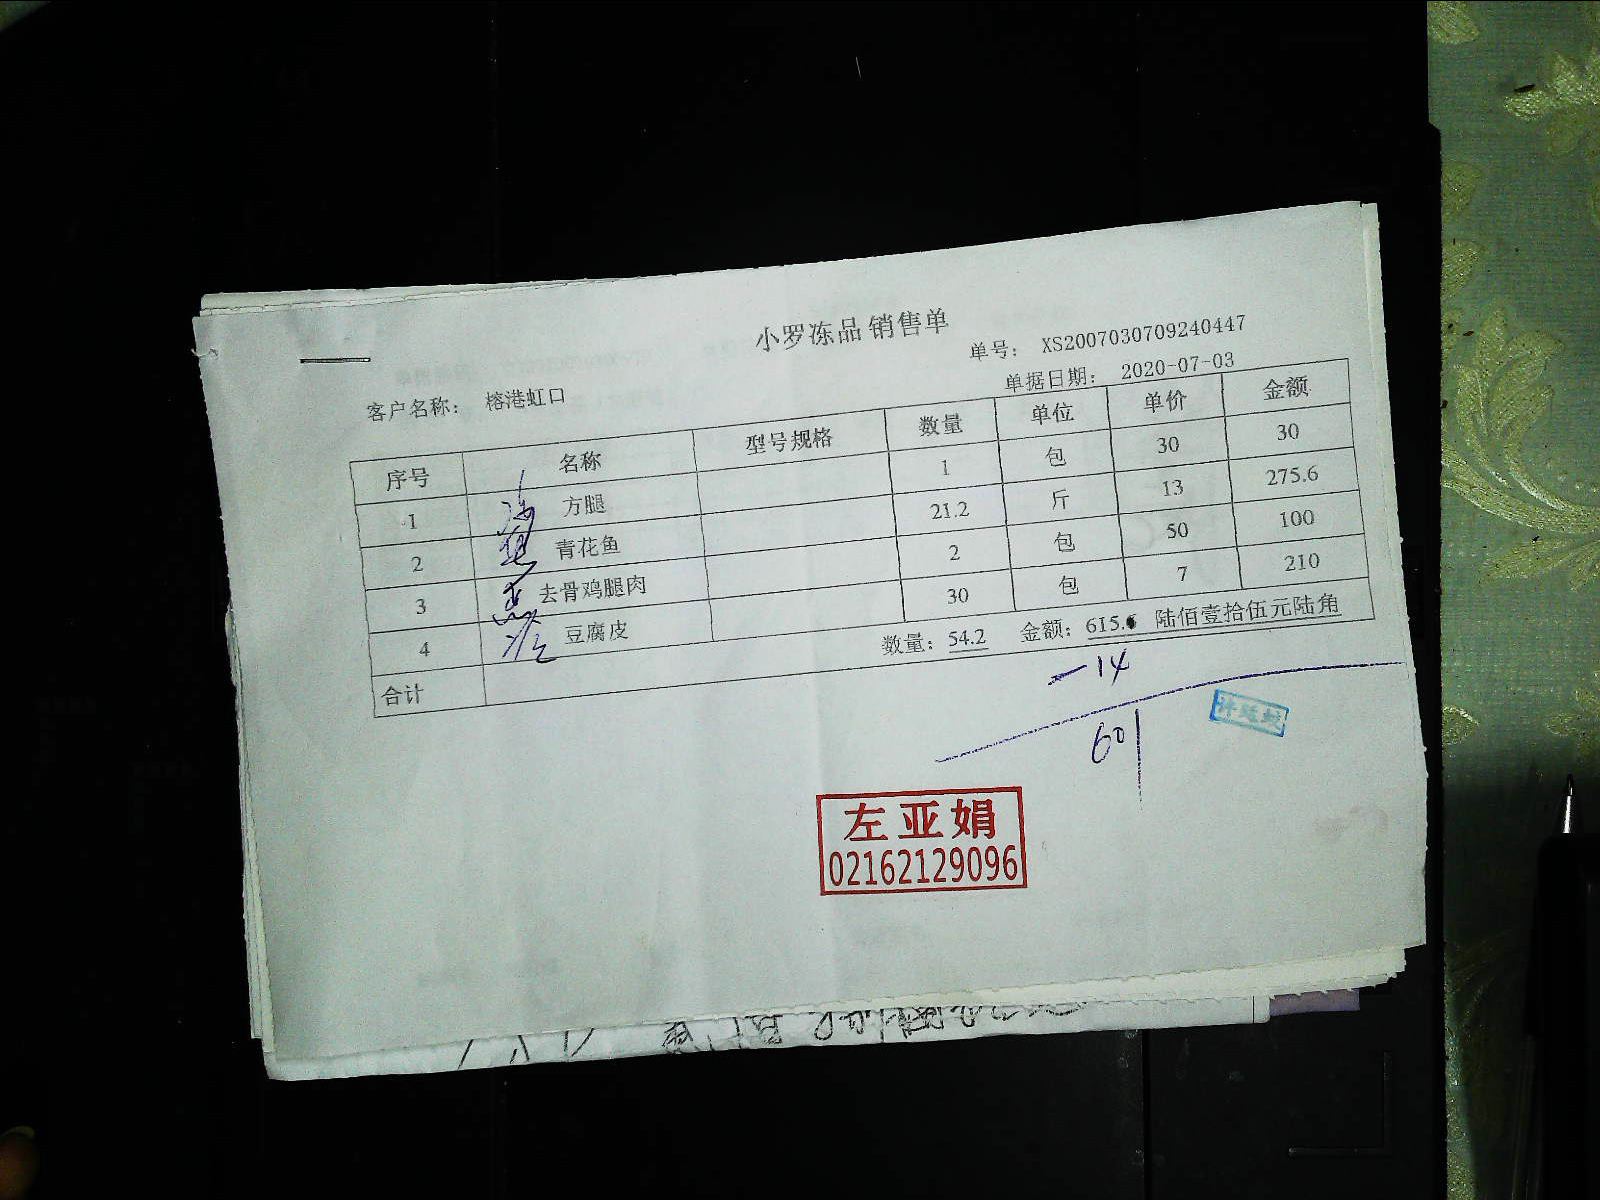 小罗冻品 销售单
单号： XS2007030709240447
客户名称： 榕港虹口
单据日期： 2020-07-03
序号 名称 型号规格 数量 单位 单价 金额
1 方腿 1 包 30 30
2 青花鱼 21.2 斤 13 275.6
3 去骨鸡腿肉 2 包 50 100
4 豆腐皮 30 包 7 210
合计 数量：54.2 金额：615.6 陆佰壹拾伍元陆角
-14
601
左亚娟
02162129096